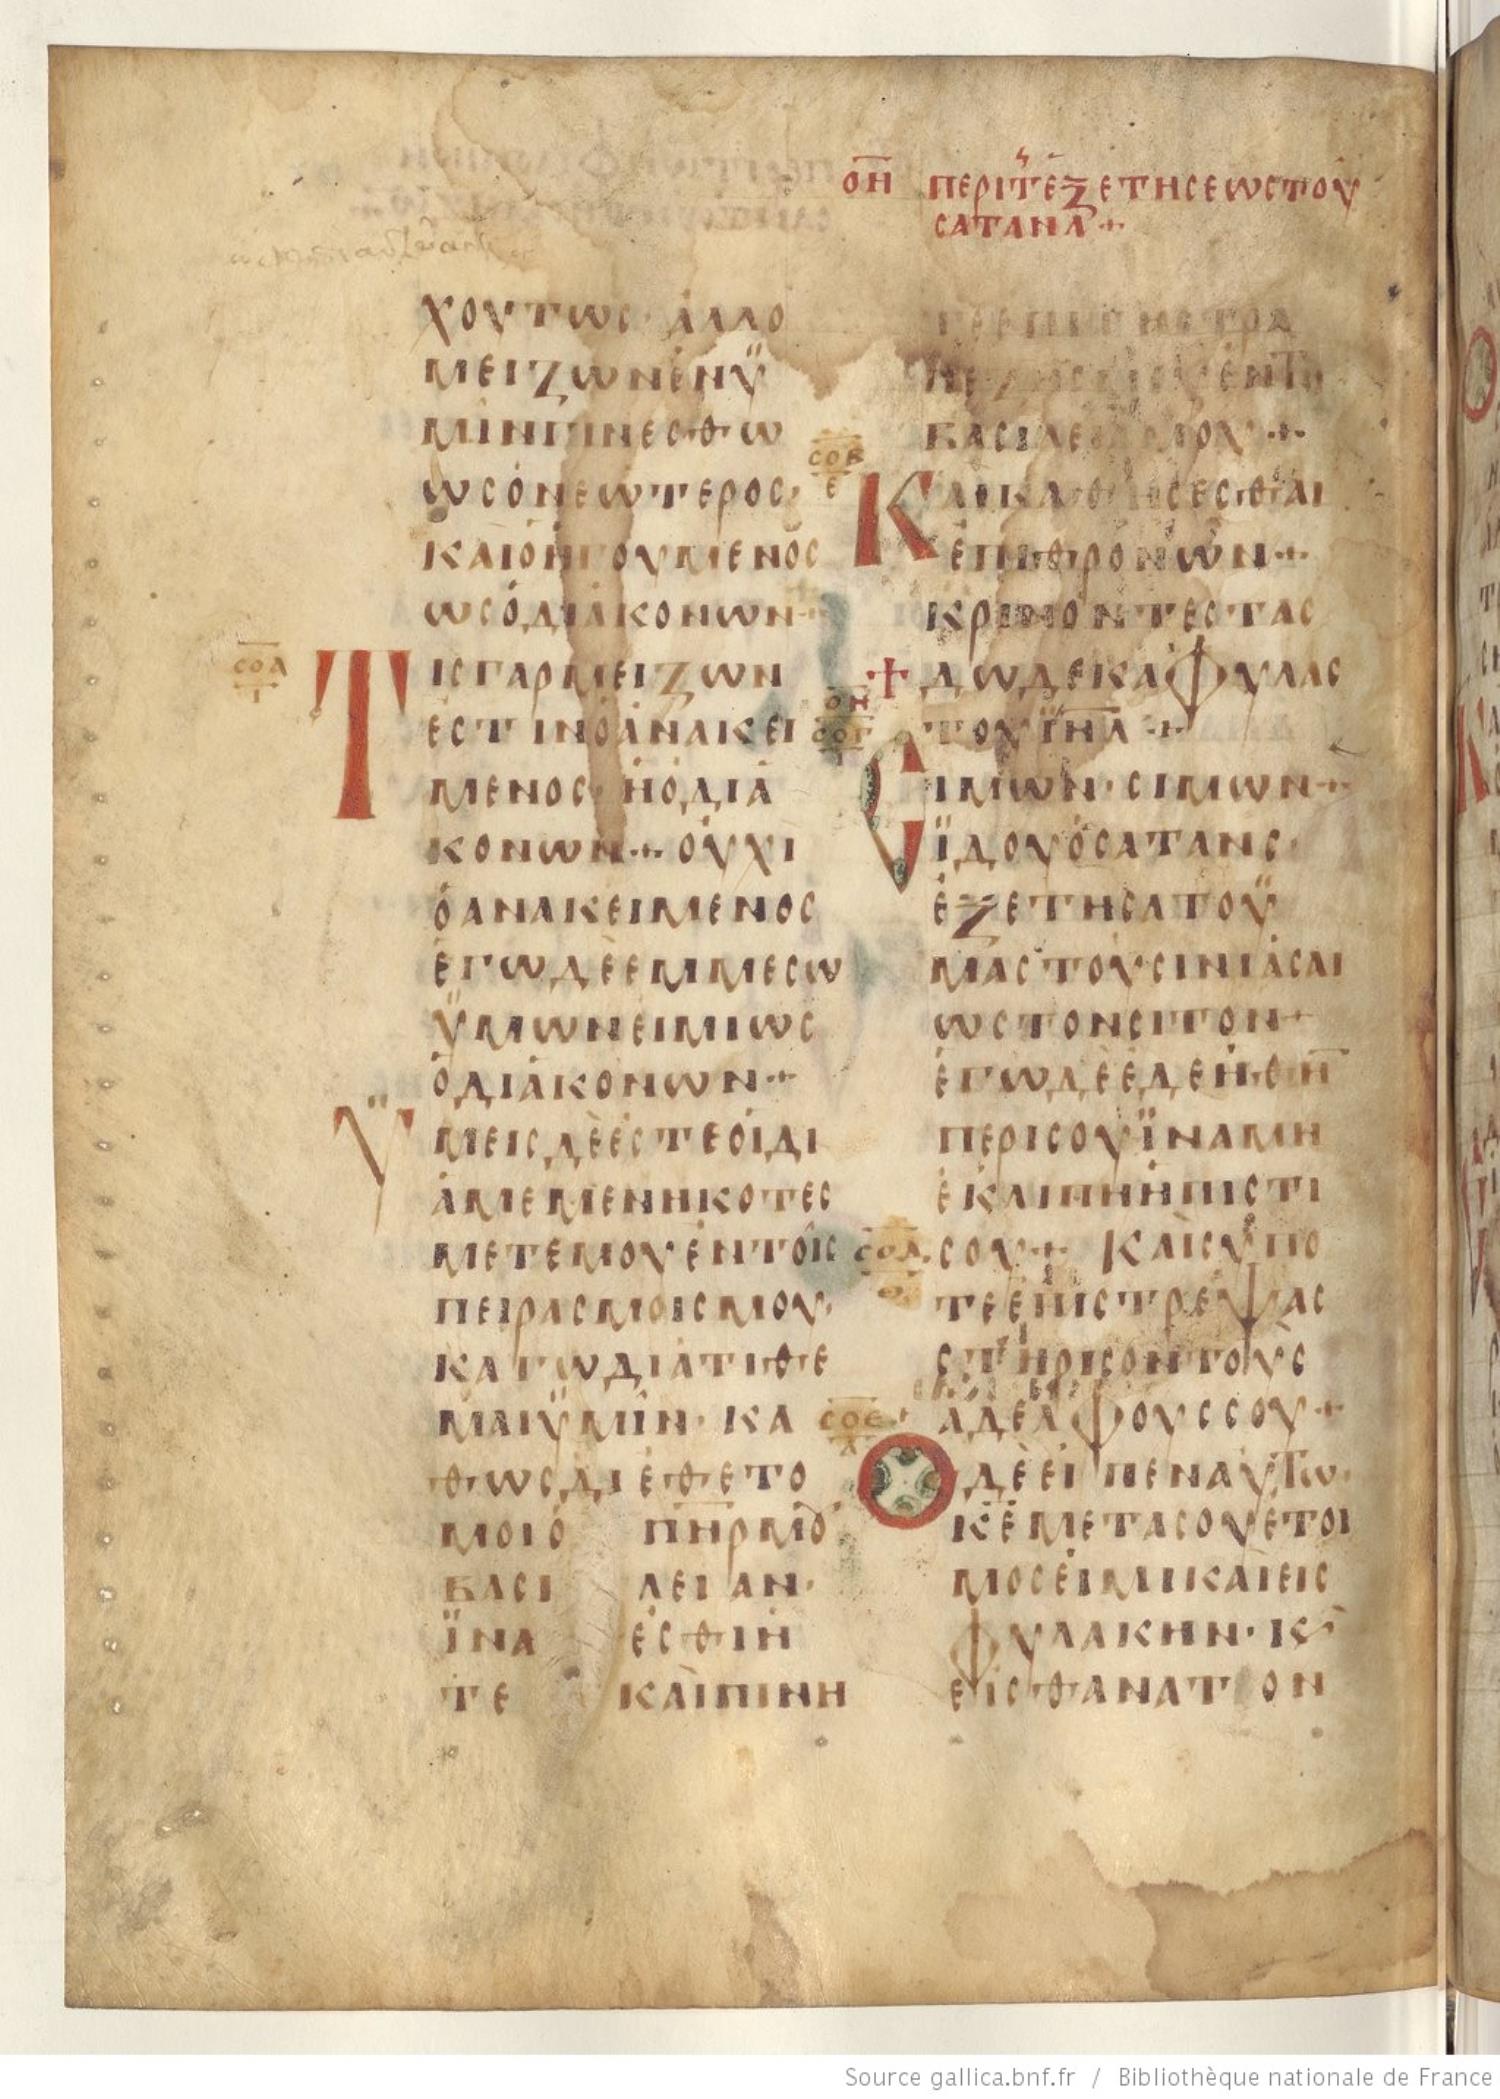 ΟΗ ΠΕΡΙΤ ΕΞΕΤΗСΕωСΤΟΥ
СΑΤΑΝΑ+
ΧΟΥΤωС· ΑΛΛΟ
ΜΕΙΖωΝΕΝΫ
ΜΙΝΓΙΝΕСΘω
ωСΟΝΕωΤΕΡΟС·
ΚΑΙΟΗΓΟΥΜΕΝΟС
ωСΟΔΙΑΚΟΝωΝ+
СΟΑ
Ι
ΤΙСΓΑΡΜΕΙΖωΝ
ΕСΤΙΝΟΑΝΑΚΕΙ
ΜΕΝΟС· ΗΟΔΙΑ
ΚΟΝωΝ+ ΟΥΧΙ
ΟΑΝΑΚΕΙΜΕΝΟС
ΕΓωΔΕΕΜΜΕСω
ΫΜωΝΕΙΜΙωС
ΟΔΙΑΚΟΝωΝ+
ΫΜΕΙСΔΕΕСΤΕΟΙΔΙ
ΑΜΕΜΕΝΗΚΟΤΕС
ΜΕΤΕΜΟΥΕΝΤΟΙС
ΠΕΙΡΑСΜΟΙСΜΟΥ·
ΚΑΓωΔΙΑΤΙΘΕ
ΜΑΙΫΜΙΝ· ΚΑ
ΘωСΔΙΕΘΕΤΟ
ΜΟΙΟ Π̅Η̅Ρ̅ΜȢ
ΒΑСΙ ΛΕΙΑΝ·
ΪΝΑ ΕСΘΙΗ
ΤΕ ΚΑΙΠΙΝΗ
ΤΕΕΠΙΤΗСΤΡΑ
ΒΑСΙΛΕΙ ΜΟΥ+
СΟΒ
Ε
ΚΑΙΚΑΘΗСΕСΘΑΙ
ΕΠΙΘΡΟΝωΝ+
ΚΡΙΝΟΝΤΕСΤΑС
+ΔωΔΕΚΑΦΥΛΑС
ΟΗ
СΟΓ
Ι
ΤΟΥΙ̅Η̅Λ̅+
СΙΜωΝ· СΙΜωΝ+
ΪΔΟΥΟСΑΤΑΝС·
ΕΞΕΤΗСΑΤΟΫ
ΜΑСΤΟΥСΙΝΙΑСΑΙ
ωСΤΟΝСΙΤΟΝ+
ΕΓωΔΕΕΔΕΗΘΗ̅
ΠΕΡΙСΟΥΪΝΑΜΗ
ΕΚΛΙΠΗΗΠΙСΤΙ
СΟΔ
Θ
СΟΥ+ ΚΑΙСΥΠΟ
ΤΕΕΠΙСΤΡΕΨΑС
СΤΗΡΙСΟΝΤΟΥС
СΟΕ
Α
ΑΔΕΛΦΟΥССΟΥ+
ΟΔΕΕΙΠΕΝΑΥΤω·
Κ̅Ε̅ΜΕΤΑСΟΥΕΤΟΙ
ΜΟСΕΙΜΙΚΑΙΕΙС
ΦΥΛΑΚΗΝ· Κ
ΕΙСΘΑΝΑΤΟΝ
Source gallica.bnf.fr / Bibliothèque nationale de France